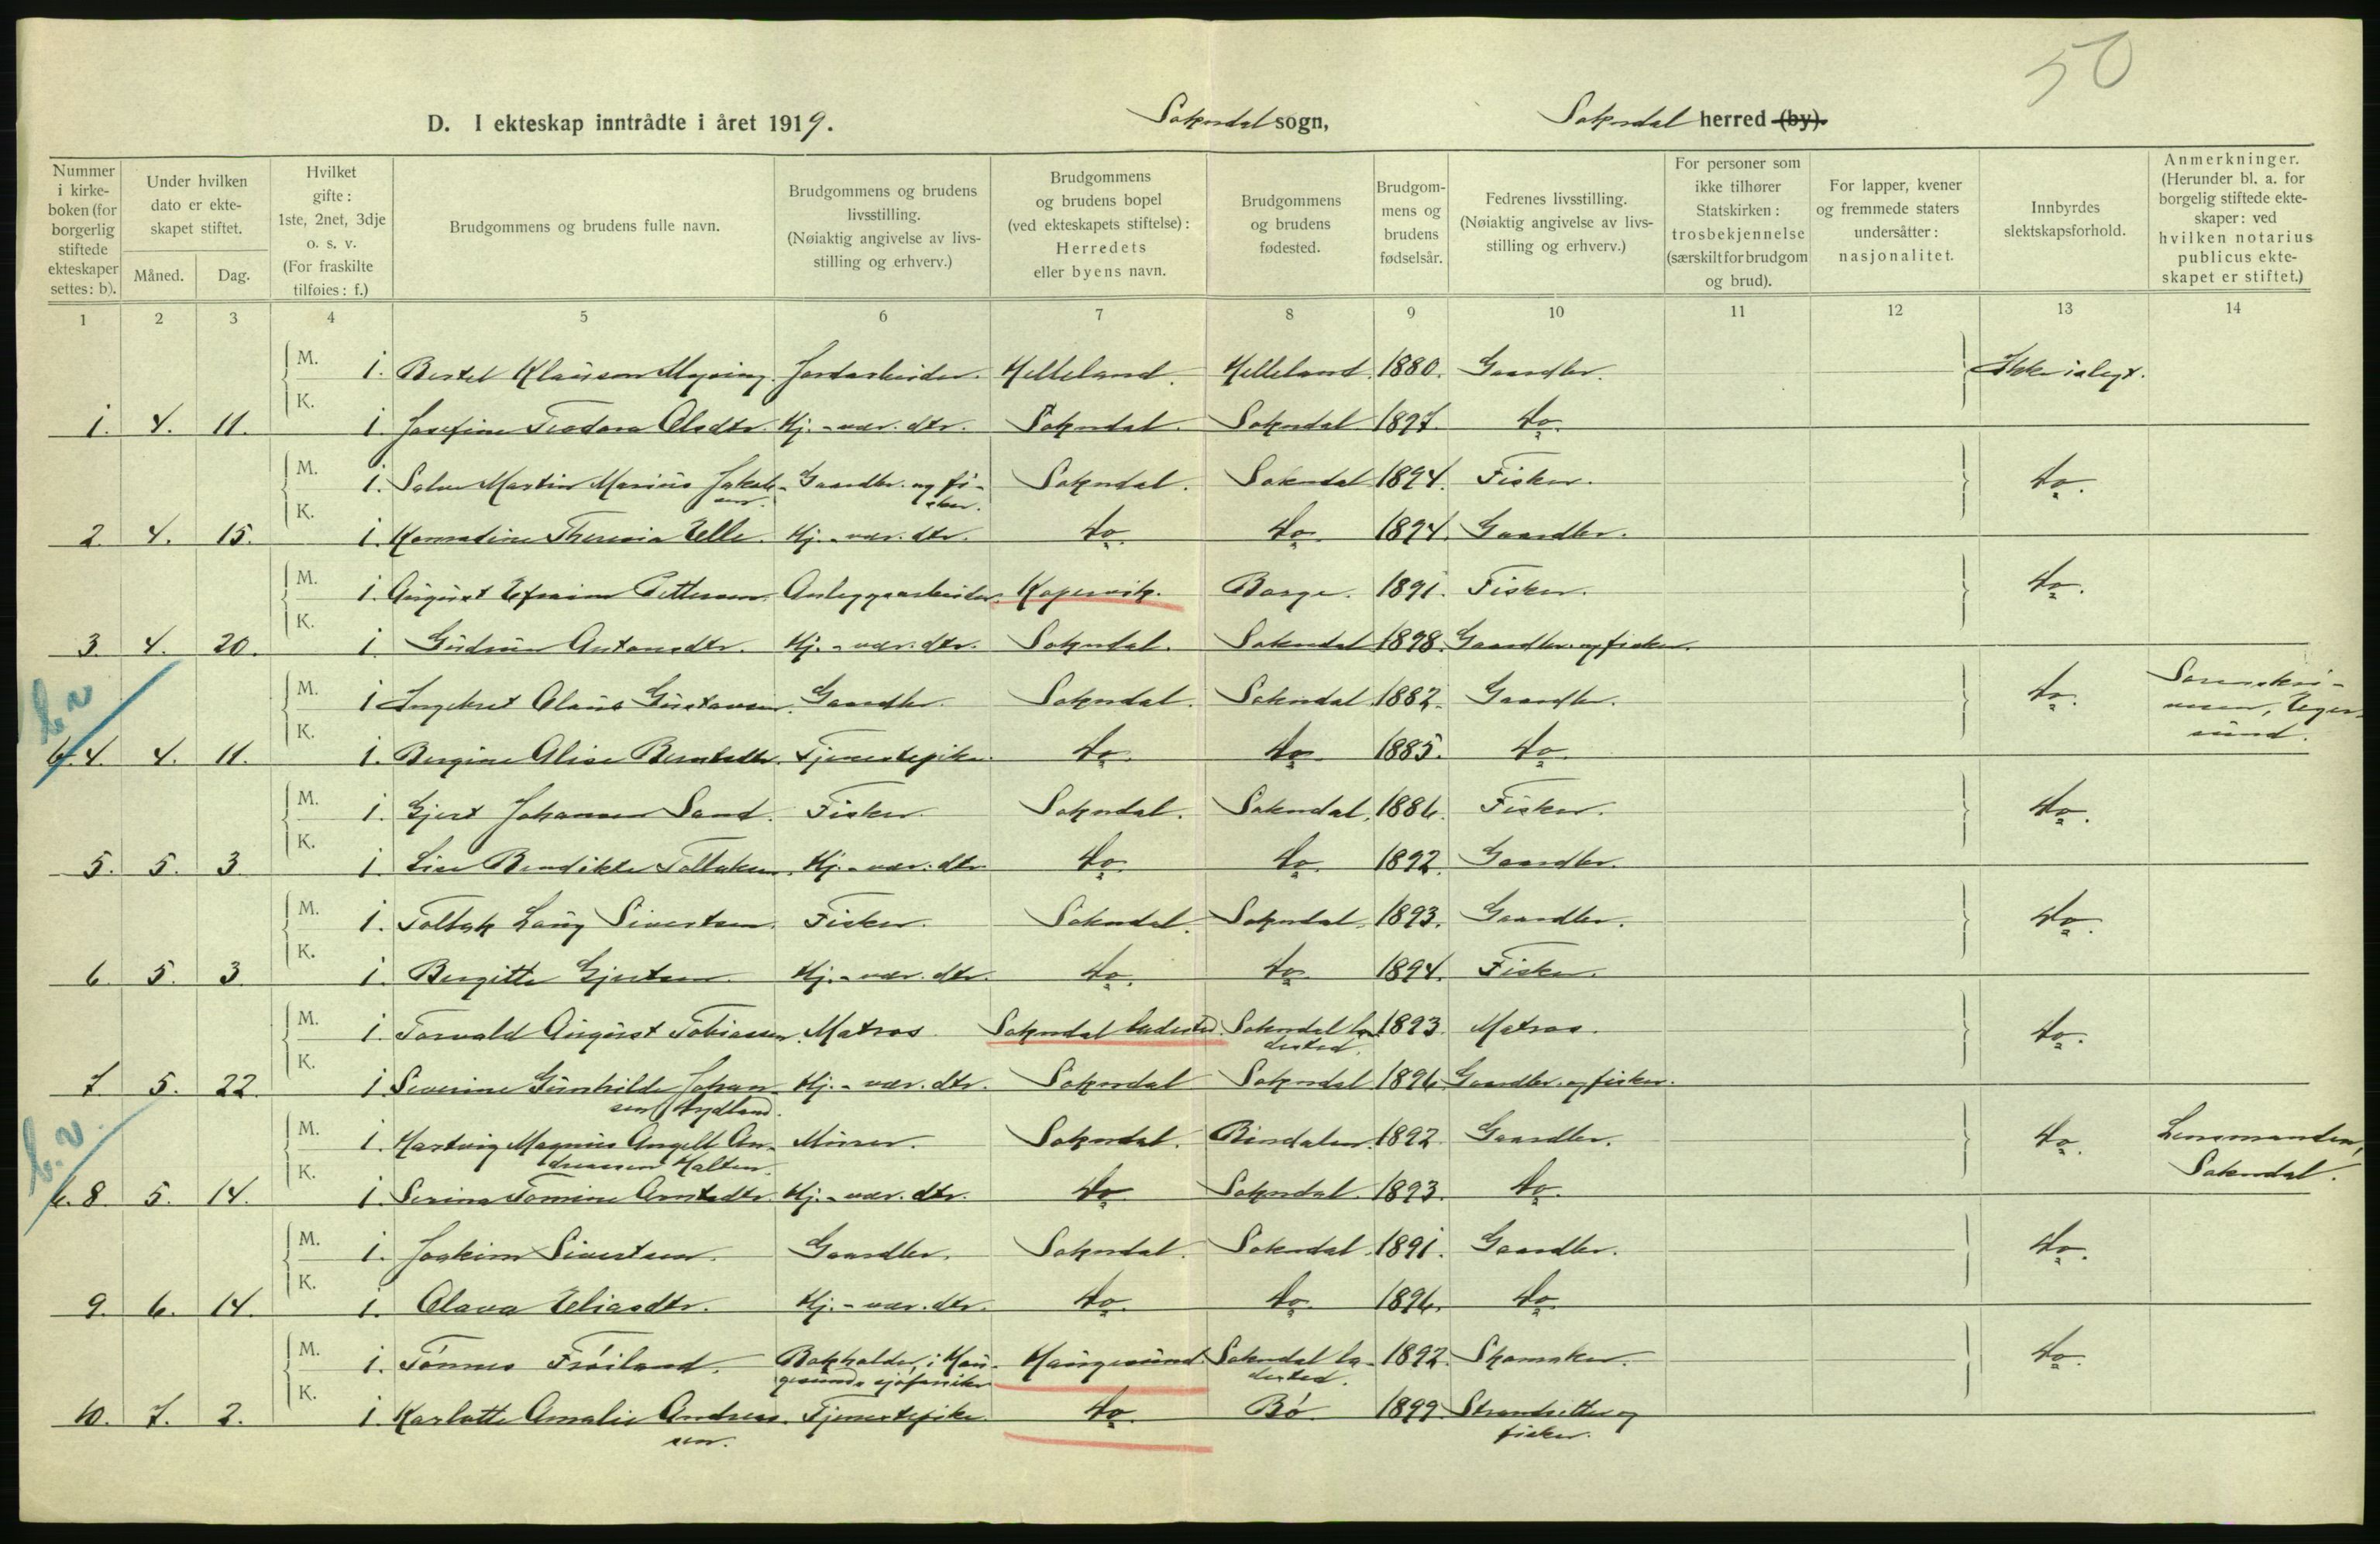 50
D. I ekteskap inntrådte i året 1919. Sokndal sogn, Sokndal herred (by).
Nummer i kirkeboken (for borgerlig stiftede ekteskaper settes: b).
Under hvilken dato er ekteskapet stiftet.
Måned. Dag.
Hvilket gifte: 1ste, 2net, 3dje o. s. v. (For fraskilte tilføies: f.)
Brudgommens og brudens fulle navn.
Brudgommens og brudens livsstilling. (Nøiaktig angivelse av livsstilling og erhverv.)
Brudgommens og brudens bopel (ved ekteskapets stiftelse): Herredets eller byens navn.
Brudgommens og brudens fødested.
Brudgommens og brudens fødselsår.
Fedrenes livsstilling. (Nøiaktig angivelse av livsstilling og erhverv.)
For personer som ikke tilhører Statskirken: trosbekjennelse (særskilt for brudgom og brud).
For lapper, kvener og fremmede staters undersåtter: nasjonalitet.
Innbyrdes slektskapsforhold.
Anmerkninger. (Herunder bl. a. for borgelig stiftede ekteskaper: ved hvilken notarius publicus ekteskapet er stiftet.)
1 2 3 4 5 6 7 8 9 10 11 12 13 14
M. 1. Bertel Klausen Mysing. Jordarbeider. Helleland. Helleland. 1880. Gaardbr. Ikke i slegt.
1. 4. 11. K. 1. Josefine Teodora Olsdtr. Hj.-vær. dtr. Sokndal. Sokndal 1897. do.
M. 1. Salve Martin Marius Jakobsen. Gaardbr. og fisker. Sokndal. Sokndal 1894. Fisker. do.
2. 4. 15. K. 1. Konradine Theresia Eelle. Hj.-vær. dtr. do. do. 1894. Gaardbr.
M. 1. August Efraim Pettersen. Anleggsarbeider. Kopervik. Borge. 1891. Fisker. do.
3. 4. 20. K. 1. Gudrun Antonsdtr. Hj.-vær. dtr. Sokndal. Sokndal 1898. Gaardbr. og fisker.
b.v
M. 1 Ingebret Olaus Gustavsen. Gaardbr. Sokndal. Sokndal 1882. Gaardbr. do. Sorenskriveren, Egersund.
b. 4. 4. 11. K. 1. Bergine Alise Berntsdtr. Tjenestepike. do. do. 1885. do.
M. 1. Gjert Johannes Sand. Fisker. Sokndal. Sokndal. 1886. Fisker. do.
5. 5. 3. K. 1. Lise Bendikte Tollaksen. Hj.-vær. dtr. do. do. 1892. Gaardbr.
M. 1. Tollak Laug Sivertsen. Fisker. Sokndal. Sokndal. 1893. Gaardbr. do.
6. 5. 3. K. 1. Bergitte Gjertsen. Hj.-vær. dtr. do. do. 1894. Fisker.
M. 1. Torvald August Tobiassen. Matros. Sokndal ladested. Sokndal ladested. 1893. Matros. do.
7. 5. 22. K. 1 Severine Gunhilde Johansen Hydland. Hj.-vær. dtr. Sokndal Sokndal 1896 Gaardbr. og fisker.
b.v.
M. 1. Hartvig Magnus Angell Andreassen Halten. Minør. Sokndal. Bindalen. 1892 Gaardbr. do. Lensmanden, Sokndal.
b. 8. 5. 14. K. 1 Serina Tomine Arntsdtr. Hj.-vær. dtr. do. Sokndal. 1893. do.
M. 1. Joakim Sivertsen. Gaardbr. Sokndal. Sokndal. 1891. Gaardbr. do.
9. 6. 14. K. 1. Olava Eliasdtr. Hj.-vær. dtr. do. do. 1896. do.
M. 1. Tønnes Frøiland. Bokholder, i Haugesunds sjøforsikr. Haugesund. Sokndal ladested. 1892. Skomaker. do.
10. 7. 2. K. 1. Karlotte Amalie Andreassen. Tjenestepike. do. Bø. 1899. Strandsitter og fisker.